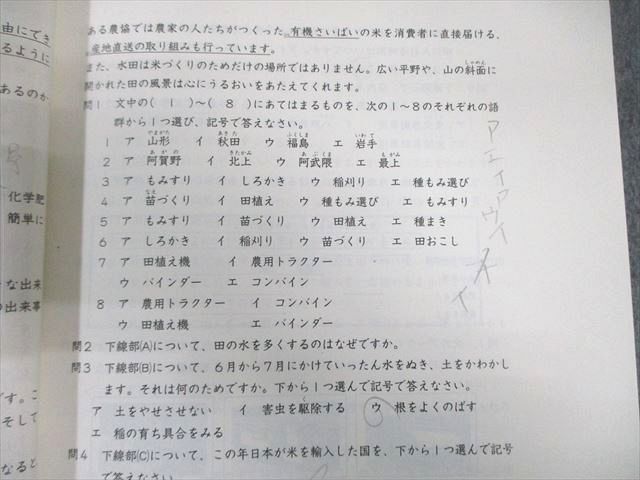 由にでき
るように
あるのか
化学肥
簡単に
な出来
の出来事
す。こ
そして
なると
ある農協では農家の人たちがつくった有機さいばいの米を消費者に直接届ける、
産地直送の取り組みも行っています。
また、水田は米づくりのためだけの場所ではありません。広い平野や、山の斜面に
開かれた田の風景は心にうるおいをあたえてくれます。
問1 文中の( 1 )~( 8 )にあてはまるものを、次の1~8のそれぞれの語
群から1つ選び、記号で答えなさい。
1 ア 山形 イ 秋田 ウ 福島 エ 岩手
2 ア 阿賀野 イ 北上 ウ 阿武隈 エ 最上
3 ア もみすり イ しろかき ウ 稲刈り エ 種もみ選び
4 ア 苗づくり イ 田植え ウ 種もみ選び エ もみすり
5 ア もみすり イ 苗づくり ウ 田植え エ 種まき
6 ア しろかき イ 稲刈り ウ 苗づくり エ 田おこし
7 ア 田植え機 イ 農用トラクター
ウ バインダー エ コンバイン
8 ア 農用トラクター イ コンバイン
ウ 田植え機 エ バインダー
問2 下線部(A)について、田の水を多くするのはなぜですか。
問3 下線部(B)について、6月から7月にかけていったん水をぬき、土をかわかし
ます。それは何のためですか。下から1つ選んで記号で答えなさい。
ア 土をやせさせない イ 害虫を駆除する ウ 根をよくのばす
エ 稲の育ち具合をみる
問4 下線部(C)について、この年日本が米を輸入した国を、下から1つ選んで記号
で答えなさい。
アエイアウイ
イ